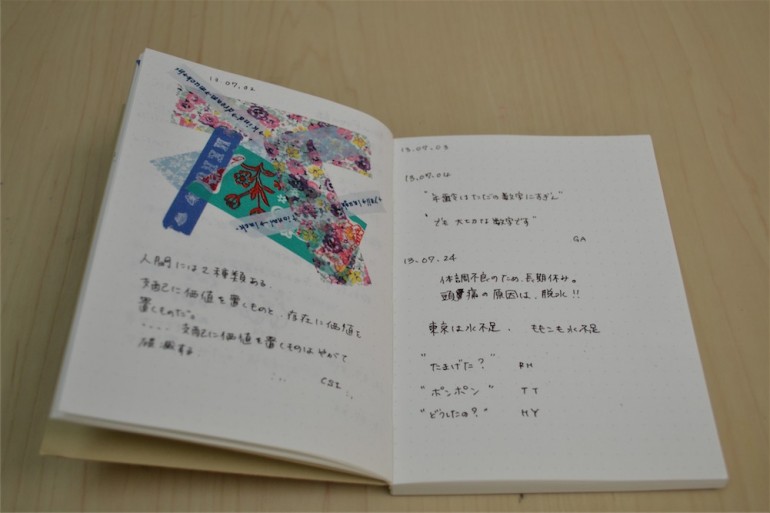 13.07.02
人間には2種類ある.
支配に価値を置くものと、存在に価値を
置くものだ。
・・・・ 支配に価値を置くものはやがて
破滅する.
13.07.03
13.07.04
"年齢はただの数字にすぎん"
"でも 大切な数字です"
GA
13.07.24
体調不良のため、長期休み。
頭痛の原因は、脱水!!
東京は水不足. ももこも水不足
"たまげた?" RH
"ポンポン" TT
"どうしたの?" MY